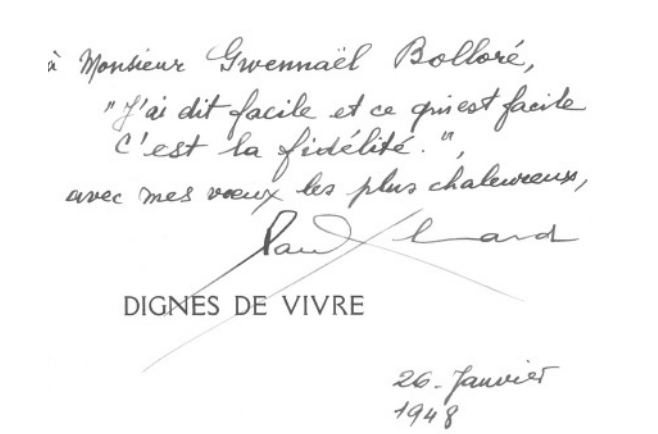 à Monsieur Gwennaël Bolloré,
"J'ai dit facile et ce qui est facile
C'est la fidélité.",
avec mes vœux les plus chaleureux,
Paul Eluard
DIGNES DE VIVRE
26. Janvier
1948